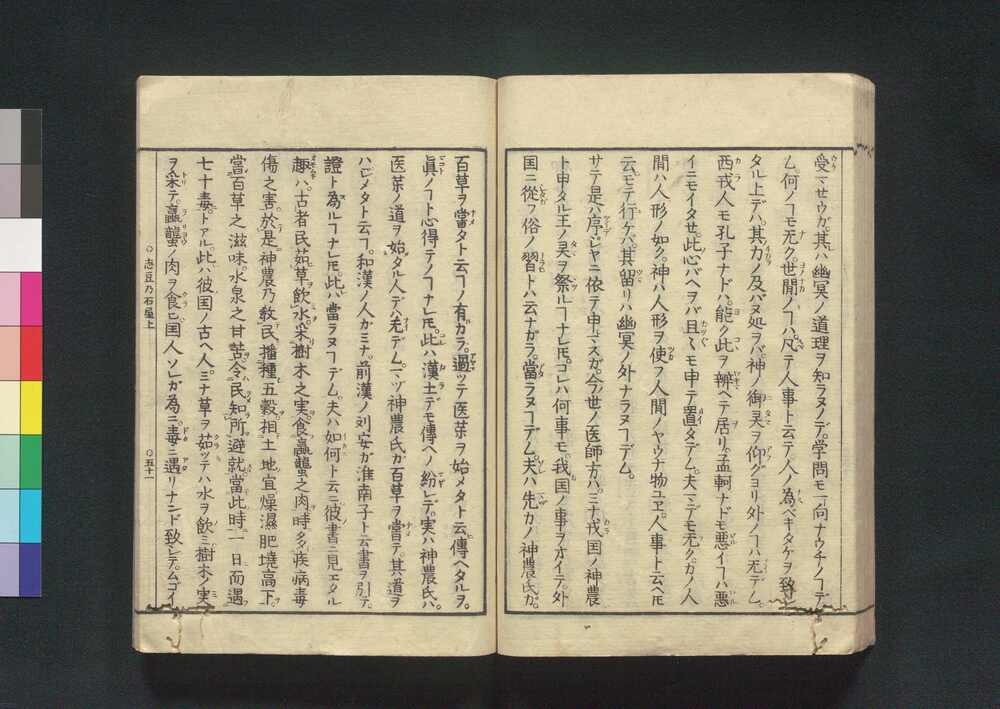 受マセウガ。其ハ幽冥ノ道理ヲ知ラヌノデ。学問モ一向ナウチノヿデ
ム。何ノヿモ无ク。世間ノヿハ。凡テ人事ト云テ人ノ為ベキタケヲ致シ
タル上デハ。其力ノ及バヌ処ヲバ。神ノ御㚑ヲ仰グヨリ外ノヿハ无デム。
西戎人モ孔子ナドハ。能ク此ヲ辨ヘテ居リ。孟軻ナドモ悪イヿハ悪
イニモイタセ。此心バヘヲバ且〻モ申テ置タデム。夫マデモ无ク。カノ人
間ハ人形ノ如ク。神ハ人形ヲ使フ人間ノヤウナ物ユヱ。人事ト云ヘ𪜈
云モテ行ケバ。其留リハ幽冥ノ外ナラヌヿデム。
サテ是ハ序ヂヤニ依テ申マスガ。今世ノ医師方ハ。ミナ戎国ノ神農
ト申タル王ノ㚑ヲ祭ルヿナレ𪜈。コレハ何事モ。我国ノ事ヲオイテ。外
国ニ從フ俗ノ習トハ云ナガラ。當ラヌヿデム。夫ハ先カノ神農氏ガ。
百草ヲ嘗タト云フノ有カラ。過ツテ医薬ヲ始メタト云傳ヘタルヲ。
眞ノヿト心得テノヿナレ𪜈。此ハ漢土デモ傳ヘノ紛レデ。実ハ神農氏ハ。
医薬ノ道ヲ始タル人デハ无デム。マヅ神農氏ガ百草ヲ嘗テ。其道ヲ
ハジメタト云フ。和漢ノ人ガミナ。前漢ノ刘安ガ淮南子ト云書ヲ引テ。
證ト為ルヿナレ𪜈。此ハ當ヲヌヿデム。夫ハ如何ト云ニ。彼書ニ見エタル
趣ハ。古者民茹草飲水。采樹木之実。食蠃蠬之肉。時多疾病毒
傷之害。於是神農乃教民播種五穀。相土地宜燥濕肥墝高下。
嘗百草之滋味。水泉之甘苦。令民知所避就。當此時一日而遇
七十毒。トアル。此ハ彼国ノ古ヘ人。ミナ草ヲ茹ツテハ水ヲ飲ミ。樹木ノ実
ヲ采テ。蠃蠬ノ肉ヲ食ヒ。国人ソレガ為ニ毒ニ遇リナンド致シテ。ムゴイ
○志豆乃石屋上 ○五十一